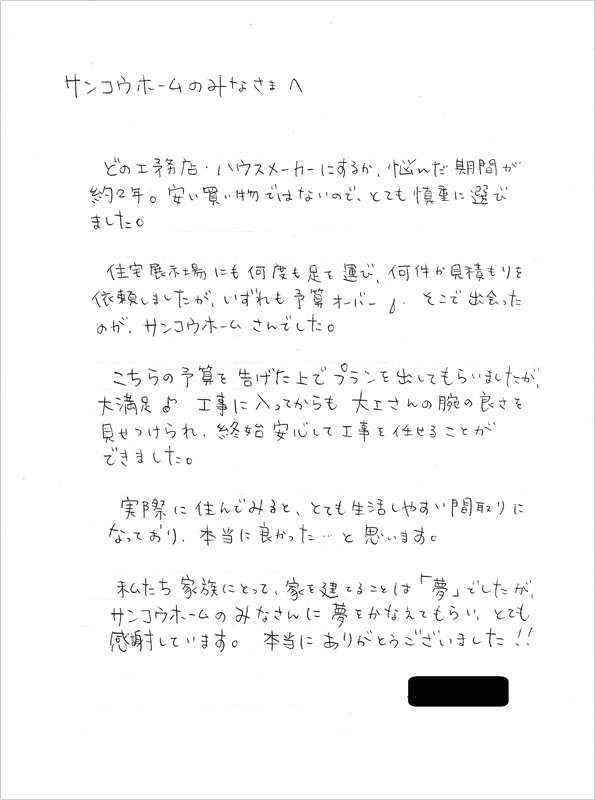 サンコウホームのみなさまへ
どの工務店・ハウスメーカーにするか、悩んだ期間が
約2年。安い買い物ではないので、とても慎重に選び
ました。
住宅展示場にも何度も足を運び、何件か見積もりを
依頼しましたが、いずれも予算オーバー。そこで出会った
のが、サンコウホームさんでした。
こちらの予算を告げた上でプランを出してもらいましたが、
大満足♪ 工事に入ってからも大工さんの腕の良さを
見せつけられ、終始安心して工事を任せることが
できました。
実際に住んでみると、とても生活しやすい間取りに
なっており、本当に良かった…と思います。
私たち家族にとって、家を建てることは「夢」でしたが、
サンコウホームのみなさんに夢をかなえてもらい、とても
感謝しています。 本当にありがとうございました!!